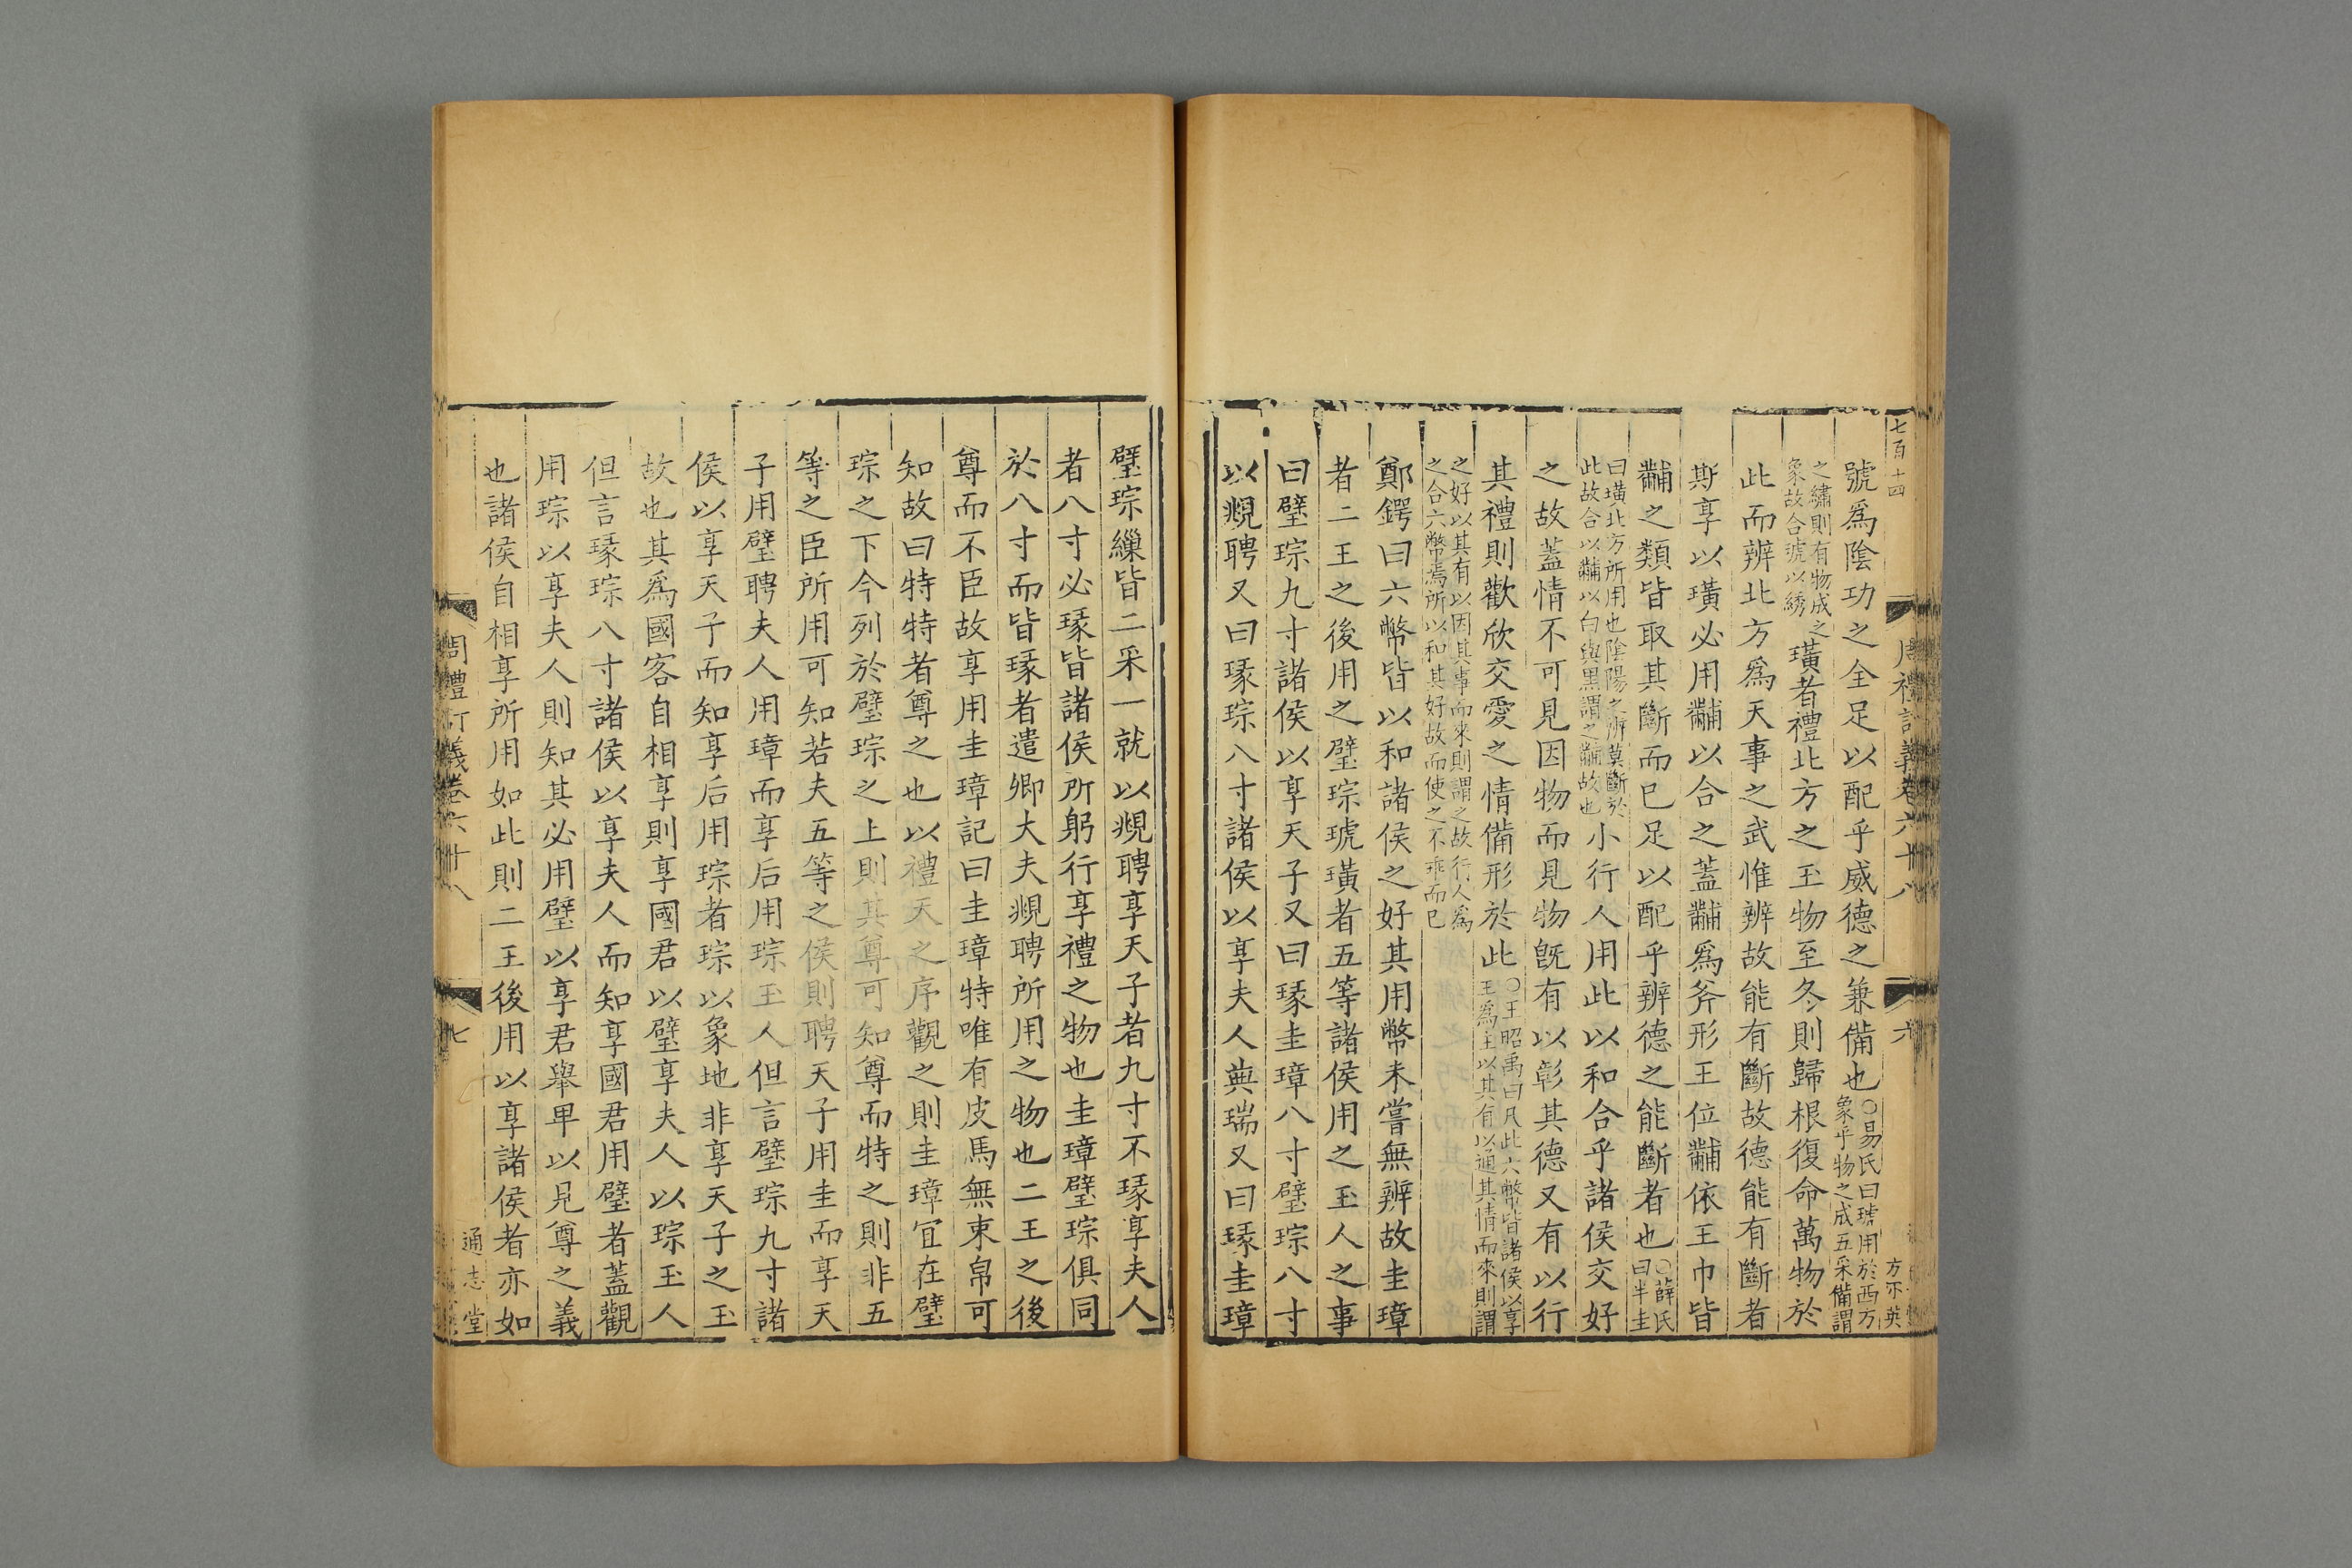 七百十四
周禮訂義卷六十八
六
方不英
號爲陰功之全足以配乎威德之兼備也○易氏曰琥用於西方象乎物之成五采備謂
之繡則有物成之象故合琥以綉璜者禮北方之玉物至冬則歸根復命萬物於
此而辨北方爲天事之武惟辨故能有斷故德能有斷者
斯享以璜必用黼以合之蓋黼爲斧形王位黼依王巾皆
黼之類皆取其斷而已足以配乎辨德之能斷者也○薛氏曰半圭
曰璜北方所用也陰陽之辨莫斷於此故合以黼以白與黑謂之黼故也小行人用此以和合乎諸侯交好
之故蓋情不可見因物而見物旣有以彰其德又有以行
其禮則歡欣交愛之情備形於此○王昭禹曰凡此六幣皆諸侯以享王爲主以其有以通其情而來則謂
之好以其有以因其事而來則謂之故行人爲之合六幣焉所以和其好故而使之不乖而已
鄭鍔曰六幣皆以和諸侯之好其用幣未嘗無辨故圭璋
者二王之後用之璧琮琥璜者五等諸侯用之玉人之事
曰璧琮九寸諸侯以享天子又曰瑑圭璋八寸璧琮八寸
以覜聘又曰瑑琮八寸諸侯以享夫人典瑞又曰瑑圭璋
璧琮繅皆二采一就以覜聘享天子者九寸不瑑享夫人
者八寸必瑑皆諸侯所躬行享禮之物也圭璋璧琮俱同
於八寸而皆瑑者遣卿大夫覜聘所用之物也二王之後
尊而不臣故享用圭璋記曰圭璋特唯有皮馬無束帛可
知故曰特特者尊之也以禮天之序觀之則圭璋宜在璧
琮之下今列於璧琮之上則其尊可知尊而特之則非五
等之臣所用可知若夫五等之侯則聘天子用圭而享天
子用璧聘夫人用璋而享后用琮玉人但言璧琮九寸諸
侯以享天子而知享后用琮者琮以象地非享天子之玉
故也其爲國客自相享則享國君以璧享夫人以琮玉人
但言瑑琮八寸諸侯以享夫人而知享國君用璧者蓋觀
用琮以享夫人則知其必用璧以享君舉卑以見尊之義
也諸侯自相享所用如此則二王後用以享諸侯者亦如
周禮訂義卷六十八
七
通志堂